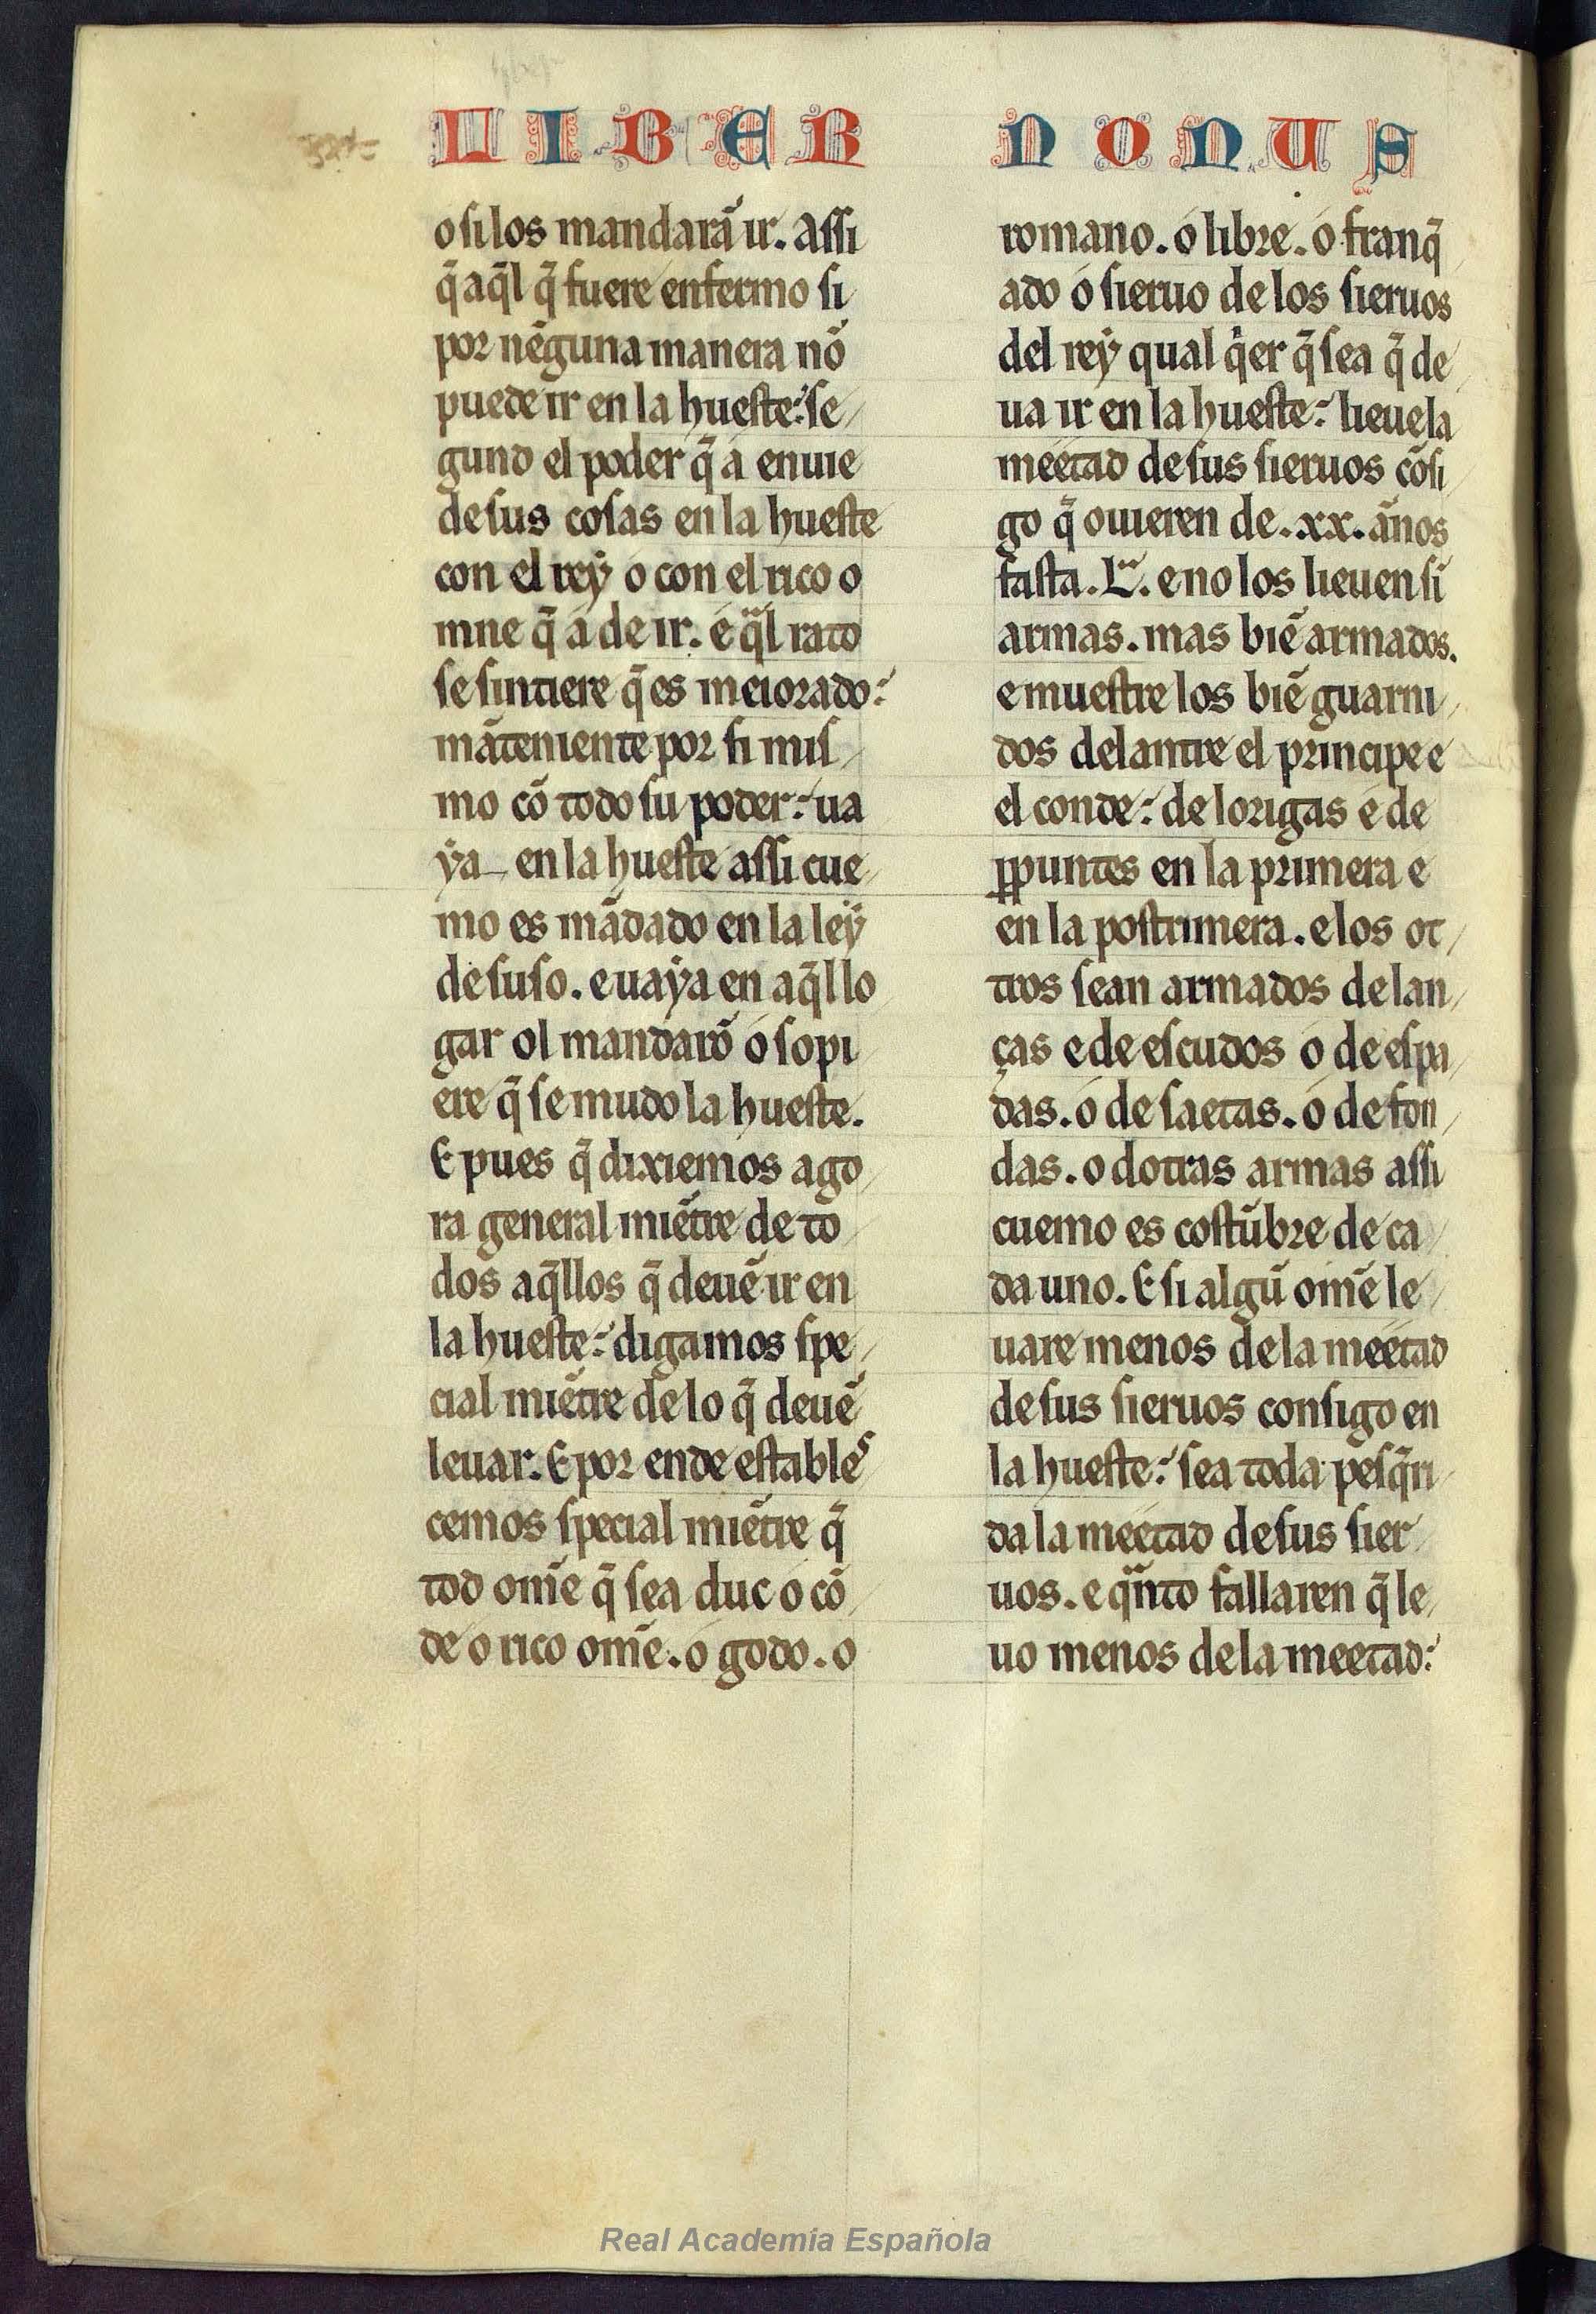 LIBER NONUS
o si los mandarā ir. assi
q̄ aq̄l q̄ fuere enfermo si
por nēguna manera nō
puede ir en la hueste: se/
gund el poder q̄ á enuie
de sus cosas en la hueste
con el rey o con el rico o
mne q̄ á de ir. é q̄l rato
se sintiere q̄ es meiorado:
māteniente por si mis/
mo cō todo su poder: ua
ẏa en la hueste assi cue/
mo es mādado en la leẏ
de suso. e uaẏa en aq̄l lo
gar ol mandarō o sopi/
ere q̄ se mudo la hueste.
E pues q̄ dixiemos ago/
ra general miētre de to/
dos aq̄llos q̄ deuē ir en
la hueste: digamos spe/
cial miētre de lo q̄ deuē
leuar. E por ende estables/
cemos special miētre q̄
tod om̄e q̄ sea duc o cō/
de o rico om̄e. o godo. o
romano. o libre. o franq̄/
ado o sieruo de los sieruos
del reẏ qual q̇er q̄ sea q̄ de/
ua ir en la hueste: lieue la
meetad de sus sieruos cōsi/
go q̄ ouieren de .xx. ános
fasta .L. e no los lieuen sī
armas. mas biē armados.
e muestre los biē guarni/
dos delantre el principe e
el conde: de lorigas e de
ꝑpuntes en la primera e
en la postrimera. e los ot/
tros sean armados de lan/
ças e de escudos o de espa/
das. o de saetas. o de fon/
das. o dotras armas assi
cuemo es costūbre de ca/
da uno. E si algū om̄e le/
uare menos de la meetad
de sus sieruos consigo en
la hueste: sea toda pesq̄ri/
da la meetad de sus sier/
uos. e q̄nto fallaren q̄ le/
uo menos de la meetad:
Real Academia Española